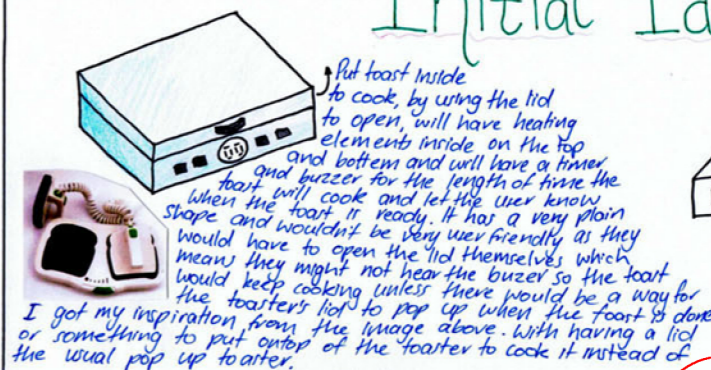 Initial Ia
Put toast inside
to cook, by using the lid
to open, will have heating
elements inside on the top
and bottem and will have a timer
and buzzer for the length of time the
toast will cook and let the user know
when the toast is ready. It has a very plain
shape and wouldn't be very user friendly as they
would have to open the lid themselves which
means they might not hear the buzer so the toast
would keep cooking unless there would be a way for
the toaster's lid to pop up when the toast is done
I got my inspiration from the image above. With having a lid
or something to put ontop of the toaster to cook it instead of
the usual pop up toaster.